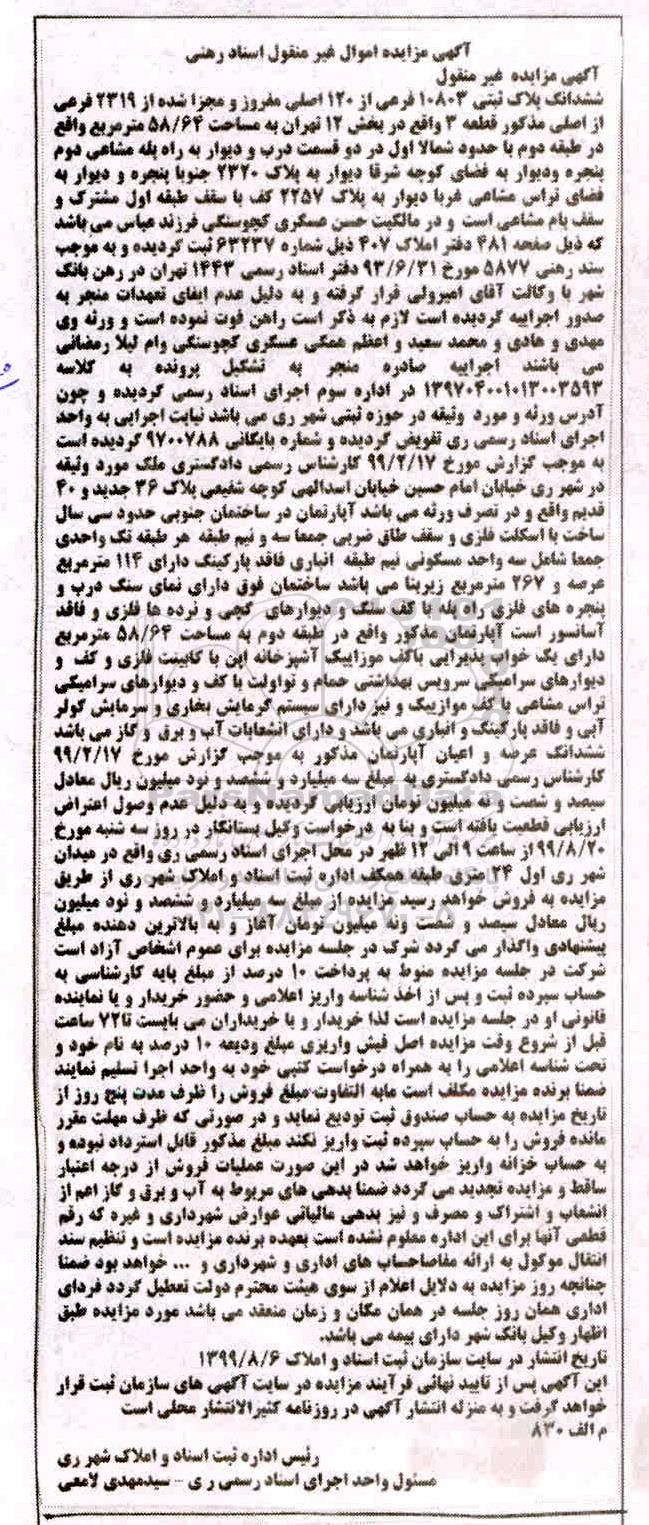 آگهی مزایده اموال غیر منقول اسناد رهنی
آگهی مزایده غیر منقول
ششدانگ پلاک ثبتی ۱۰۸۰۳ فرعی از ۱۲۰ اصلی مفروز و مجزا شده از ۲۳۱۹ فرعی
از اصلی مذکور قطعه ۳ واقع در بخش ۱۲ تهران به مساحت ۵۸/۶۴ مترمربع واقع
در طبقه دوم با حدود شمالا اول در دو قسمت درب و دیوار به راه پله مشاعی دوم
پنجره ودیوار به فضای کوچه شرقا دیوار به پلاک ۲۳۲۰ جنوبا پنجره و دیوار به
فضای تراس مشاعی غربا دیوار به پلاک ۲۲۵۷ کف با سقف طبقه اول مشترک و
سقف بام مشاعی است و در مالکیت حسن عسگری کچوسنگی فرزند عباس می باشد
که ذیل صفحه ۴۸۱ دفتر املاک ۴۰۷ ذیل شماره ۶۳۲۳۷ ثبت گردیده و به موجب
سند رهنی ۵۸۷۷ مورخ ۹۳/۶/۳۱ دفتر اسناد رسمی ۱۴۴۳ تهران در رهن بانک
شهر با وکالت آقای امیرولی قرار گرفته و به دلیل عدم ایفای تعهدات منجر به
صدور اجراییه گردیده است لازم به ذکر است راهن فوت نموده است و ورثه وی
مهدی و هادی و محمد سعید و اعظم همگی عسگری کچوسنگی وام لیلا رمضانی
می باشند اجراییه صادره منجر به تشکیل پرونده به کلاسه
۱۳۹۷۰۴۰۰۱۰۱۳۰۰۳۵۹۳ در اداره سوم اجرای اسناد رسمی گردیده و چون
آدرس ورثه و مورد وثیقه در حوزه ثبتی شهر ری می باشد نیابت اجرایی به واحد
اجرای اسناد رسمی ری تفویض گردیده و شماره بایگانی ۹۷۰۰۷۸۸ گردیده است
به موجب گزارش مورخ ۹۹/۲/۱۷ کارشناس رسمی دادگستری ملک مورد وثیقه
در شهر ری خیابان امام حسین خیابان اسدالهی کوچه شفیعی پلاک ۳۶ جدید و ۴۰
قدیم واقع و در تصرف ورثه می باشد آپارتمان در ساختمان جنوبی حدود سی سال
ساخت با اسکلت فلزی و سقف طاق ضربی جمعا سه و نیم طبقه هر طبقه تک واحدی
جمعا شامل سه واحد مسکونی نیم طبقه انباری فاقد پارکینگ دارای ۱۱۴ مترمربع
عرصه و ۲۶۷ مترمربع زیربنا می باشد ساختمان فوق دارای نمای سنگ درب و
پنجره های فلزی راه پله با کف سنگ و دیوارهای گچی و نرده ها فلزی و فاقد
آسانسور است آپارتمان مذکور واقع در طبقه دوم به مساحت ۵۸/۶۴ مترمربع
دارای یک خواب پذیرایی باکف موزاییک آشپزخانه اپن با کابینت فلزی و کف و
دیوارهای سرامیکی سرویس بهداشتی حمام و توالت با کف و دیوارهای سرامیکی
تراس مشاعی با کف موازییک و نیز دارای سیستم گرمایش بخاری و سرمایش کولر
آبی و فاقد پارکینگ و انباری می باشد و دارای انشعابات آب و برق و گاز می باشد
ششدانگ عرصه و اعیان آپارتمان مذکور به موجب گزارش مورخ ۹۹/۲/۱۷
کارشناس رسمی دادگستری به مبلغ سه میلیارد و ششصد و نود میلیون ریال معادل
سیصد و شصت و نه میلیون تومان ارزیابی گردیده و به دلیل عدم وصول اعتراض
ارزیابی قطعیت یافته است و بنا به درخواست وکیل بستانکار در روز سه شنبه مورخ
۹۹/۸/۲۰ از ساعت ۹ الی ۱۲ ظهر در محل اجرای اسناد رسمی ری واقع در میدان
شهر ری اول ۲۴ متری طبقه همکف اداره ثبت اسناد و املاک شهر ری از طریق
مزایده به فروش خواهد رسید مزایده از مبلغ سه میلیارد و ششصد و نود میلیون
ریال معادل سیصد و شصت ونه میلیون تومان آغاز و به بالاترین دهنده مبلغ
پیشنهادی واگذار می گردد شرک در جلسه مزایده برای عموم اشخاص آزاد است
شرکت در جلسه مزایده منوط به پرداخت ۱۰ درصد از مبلغ پایه کارشناسی به
حساب سپرده ثبت و پس از اخذ شناسه واریز اعلامی و حضور خریدار و یا نماینده
قانونی او در جلسه مزایده است لذا خریدار و یا خریداران می بایست تا۷۲ ساعت
قبل از شروع وقت مزایده اصل فیش واریزی مبلغ ودیعه ۱۰ درصد به نام خود و
تحت شناسه اعلامی را به همراه درخواست کتبی خود به واحد اجرا تسلیم نمایند
ضمنا برنده مزایده مکلف است مابه التفاوت مبلغ فروش را ظرف مدت پنج روز از
تاریخ مزایده به حساب صندوق ثبت تودیع نماید و در صورتی که ظرف مهلت مقرر
مانده فروش را به حساب سپرده ثبت واریز نکند مبلغ مذکور قابل استرداد نبوده و
به حساب خزانه واریز خواهد شد در این صورت عملیات فروش از درجه اعتبار
ساقط و مزایده تجدید می گردد ضمنا بدهی های مربوط به آب و برق و گاز اعم از
انشعاب و اشتراک و مصرف و نیز بدهی مالیاتی عوارض شهرداری و غیره که رقم
قطعی آنها برای این اداره معلوم نشده است بعهده برنده مزایده است و تنظیم سند
انتقال موکول به ارائه مفاصاحساب های اداری و شهرداری و ... خواهد بود ضمنا
چنانچه روز مزایده به دلایل اعلام از سوی هیئت محترم دولت تعطیل گردد فردای
اداری همان روز جلسه در همان مکان و زمان منعقد می باشد مورد مزایده طبق
اظهار وکیل بانک شهر دارای بیمه می باشد.
تاریخ انتشار در سایت سازمان ثبت اسناد و املاک ۱۳۹۹/۸/۶
این آگهی پس از تایید نهائی فرآیند مزایده در سایت آگهی های سازمان ثبت قرار
خواهد گرفت و به منزله انتشار آگهی در روزنامه کثیرالانتشار محلی است
م الف ۸۳۰
رئیس اداره ثبت اسناد و املاک شهر ری
مسئول واحد اجرای اسناد رسمی ری - سیدمهدی لامعی